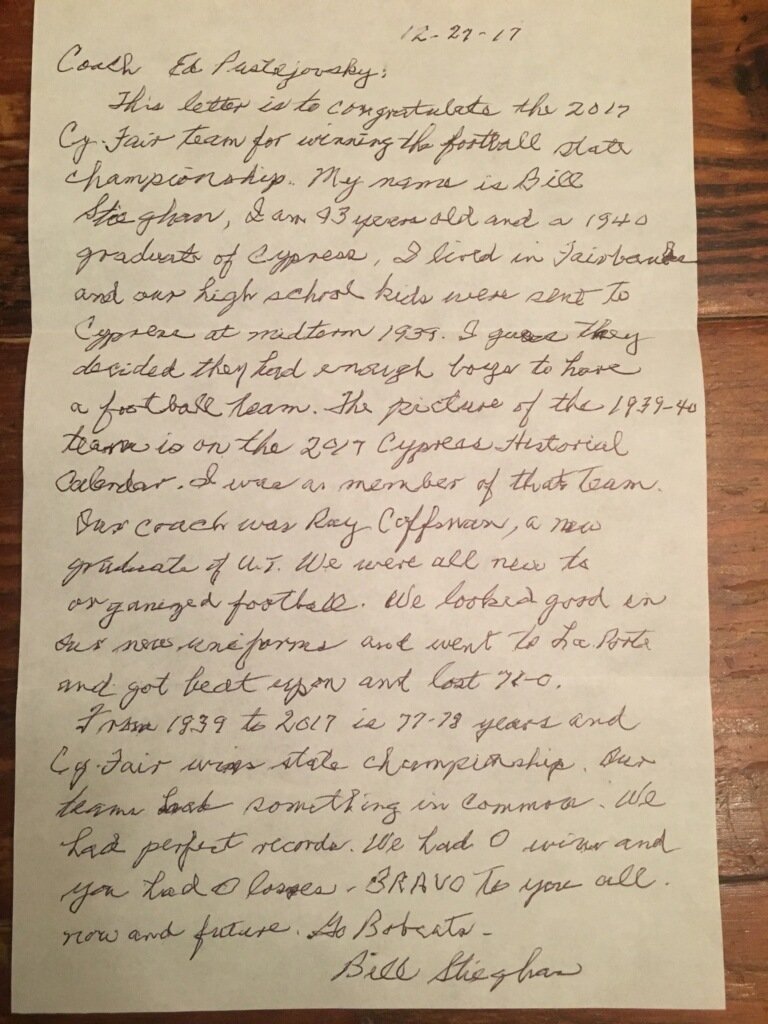 12-27-17
Coach Ed Pustejovsky:
This letter is to congratulate the 2017
Cy-Fair team for winning the football state
championship. My name is Bill
Stieghan, I am 93 years old and a 1940
graduate of Cypress, I lived in Fairbanks
and our high school kids were sent to
Cypress at midterm 1939. I guess they
decided they had enough boys to have
a football team. The picture of the 1939-40
team is on the 2017 Cypress Historical
Calendar. I was a member of that team.
Our coach was Ray Coffman, a new
graduate of U.T. We were all new to
organized football. We looked good in
our new uniforms and went to La Porte
and got beat upon and lost 71-0.
From 1939 to 2017 is 77-78 years and
Cy-Fair wins state championship. Our
teams had something in common. We
had perfect records. We had 0 wins and
you had 0 losses - BRAVO to you all.
now and future. Go Bobcats -
Bill Stieghan